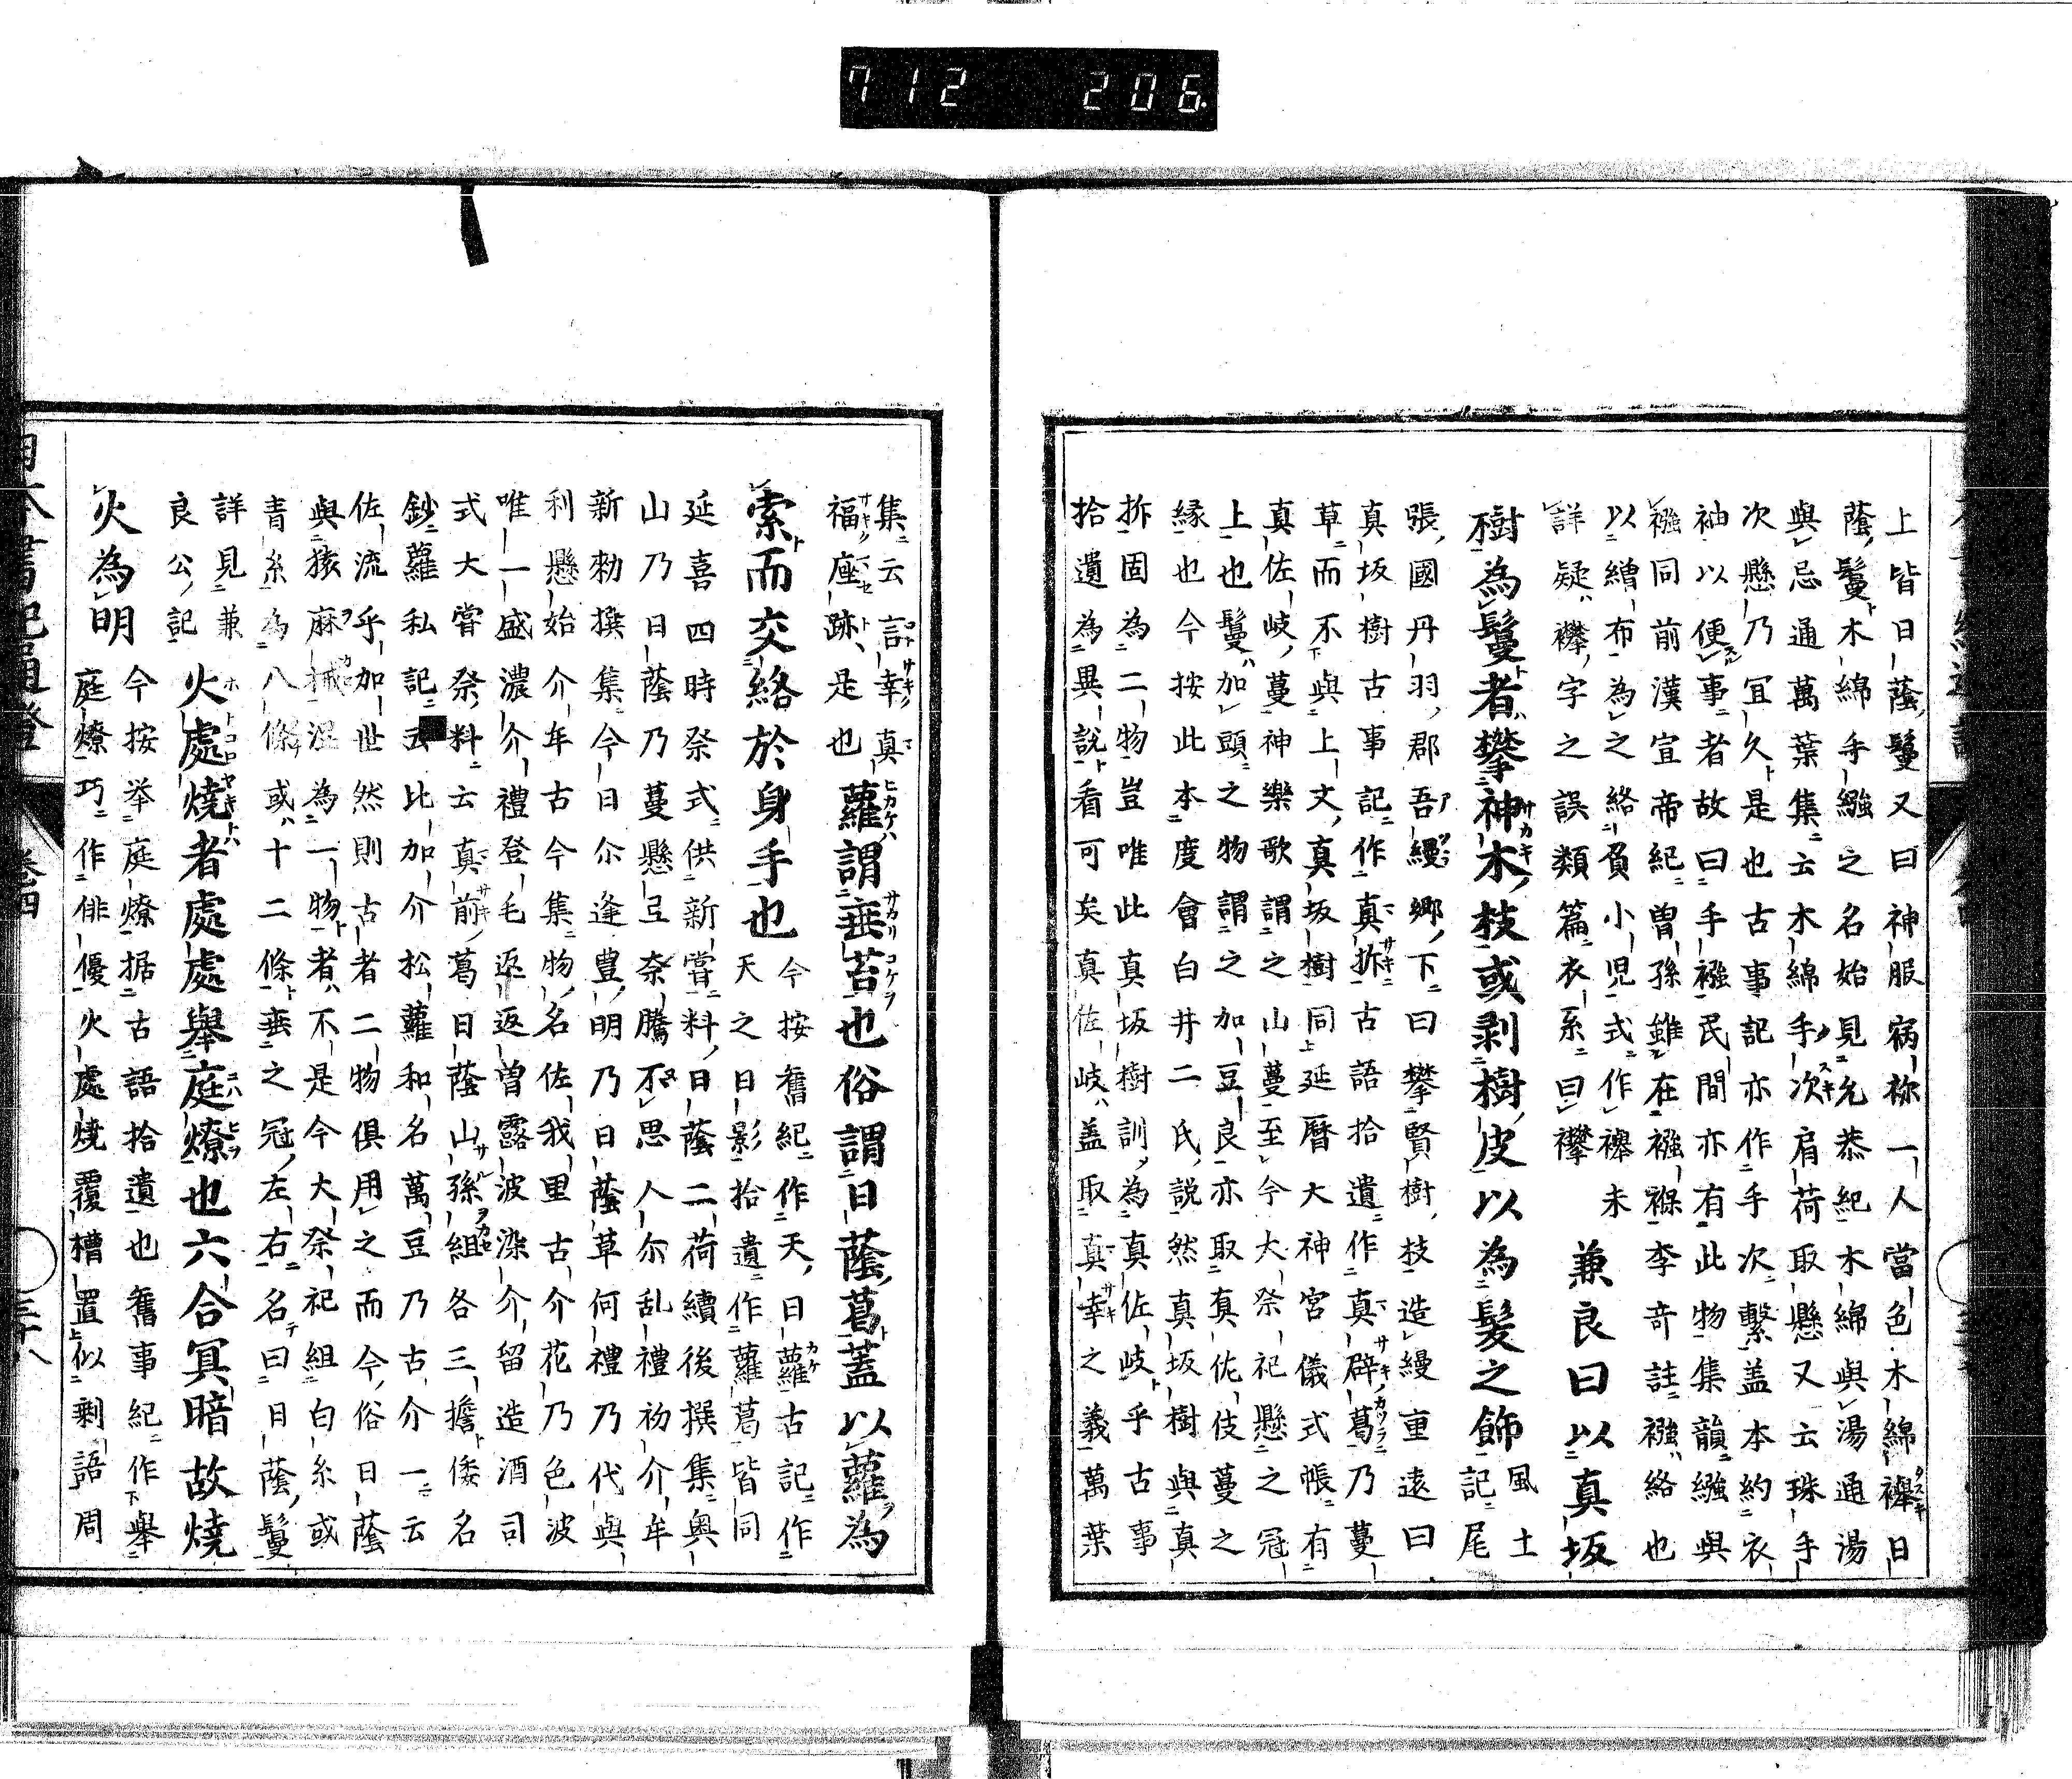 712 206
上皆日蔭鬘又曰神服病祢一人當色木綿襷日
蔭鬘木綿手繦之名始見允恭紀木綿與湯通湯
與忌通萬葉集云木綿手次肩荷取懸又云珠手
次懸乃冝久是也古事記亦作手次繋盖本約衣
袖以便事者故曰手襁民間亦有此物集韻繈與
襁同前漢宣帝紀曽孫雖在襁褓李竒註襁絡也
以繒布為之絡負小児式作襷未
詳疑襷字之誤類篇衣系曰襻 兼良曰以真坂
樹為鬘者攀神木枝或剥樹皮以為髪之飾 風土
記尾
張國丹羽郡吾縵郷下曰攀賢樹枝造縵重遠曰
真坂樹古事記作真拆古語拾遺作真辟葛乃蔓
草而不與上文真坂樹同延暦大神宮儀式帳有
真佐岐蔓神樂歌謂之山蔓至今大祭祀懸之冠
上也鬘加頭之物謂之加豆良亦取真佐伎蔓之
縁也今按此本度會白井二氏説然真坂樹與真
拆固為二物豈唯此真坂樹訓為真佐岐乎古事
拾遺為異説看可矣真佐岐盖取真幸之義萬葉
集云言幸真
福座跡是也 蘿謂垂苔也俗謂日蔭葛蓋以蘿為
索而交絡於身手也 今按舊紀作天日蘿古記作
天之日影拾遺作蘿葛皆同
延喜四時祭式供新嘗料日蔭二荷續後撰集奥
山乃日蔭乃蔓懸豆奈騰不思人尓乱禮初介牟
新勅撰集今日尓逢豊明乃日蔭草何禮乃代與
利懸始介年古今集物名佐我里古介花乃色波
唯一盛濃介禮登毛返返曽露波染介留造酒司
式大嘗祭料云真前葛日蔭山孫組各三擔倭名
鈔蘿私記云比加介松蘿和名萬豆乃古介一云
佐流乎加世然則古者二物倶用之而今俗日蔭
與猿麻桛混為一物者不是今大祭祀組白糸或
青糸為八條或十二條垂之冠左右名曰日蔭鬘
詳見兼
良公記 火處燒者處處舉庭燎也六合冥暗故燒
火為明 今按挙庭燎据古語拾遺也舊事紀作舉
庭燎巧作俳優火處燒覆槽置似剰語周
卷四